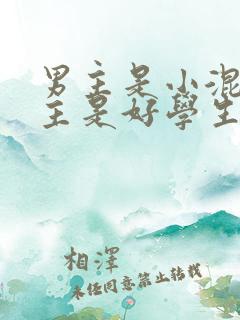 男主是小混
主是好學生
相澤
未經同意禁止轉載